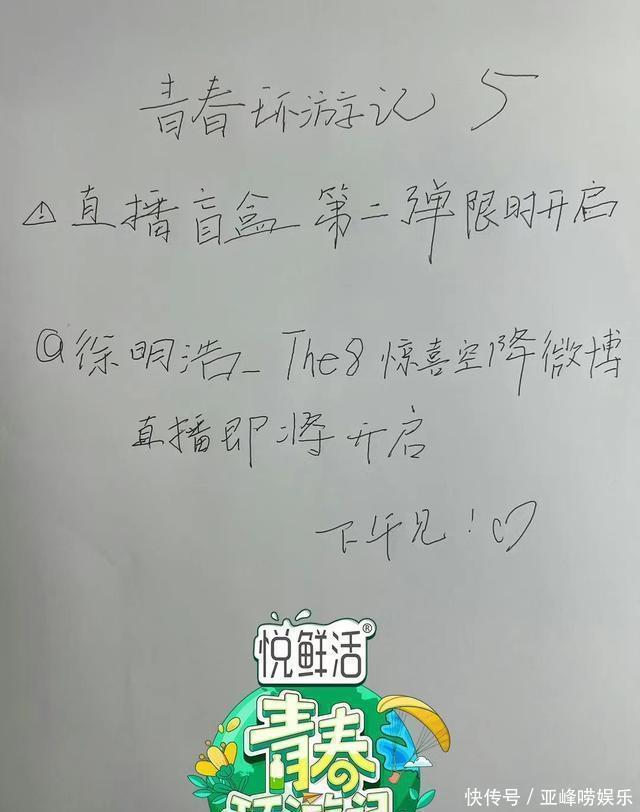 青春环游记 5
⚠直播盲盒 第二弹限时开启
@徐明浩_The8惊喜空降微博
直播即将开启
下午见！♡
悦鲜活®
青春
环游记
快传号／亚峰唠娱乐